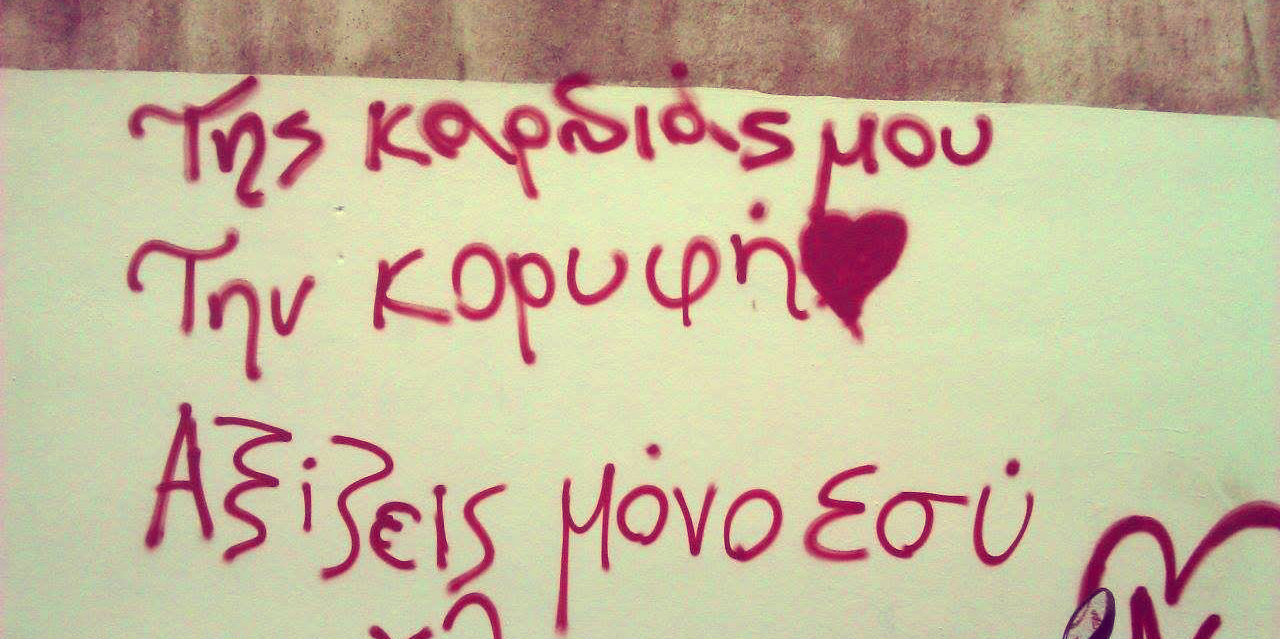 Της καρδιάς μου
Την κορυφή
Αξίζεις μόνο εσύ